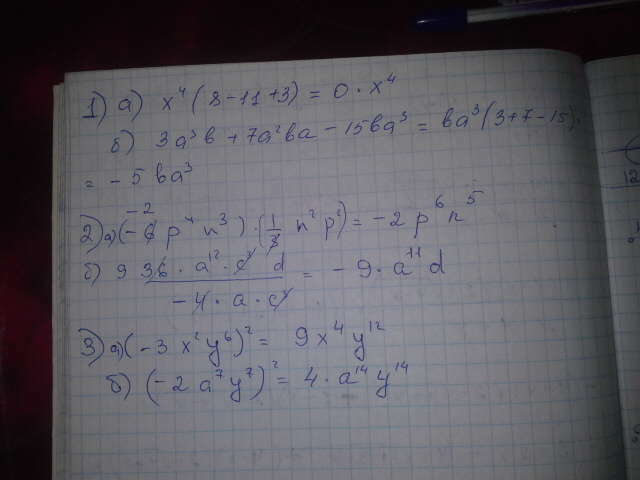 1) а) x⁴(8-11+3) = 0·x⁴
б) 3a³b + 7a²ba - 15ba³ = ba³(3+7-15)
= -5ba³
-2
2) а) (-6 p⁴ n³)·(1/3 n² p²) = -2 p⁶ n⁵
б) 9 36·a¹²·c³ d / -4·a·c³ = -9·a¹¹ d
3) а) (-3 x² y⁶)² = 9x⁴ y¹²
б) (-2 a⁷ y⁷)² = 4·a¹⁴ y¹⁴
12